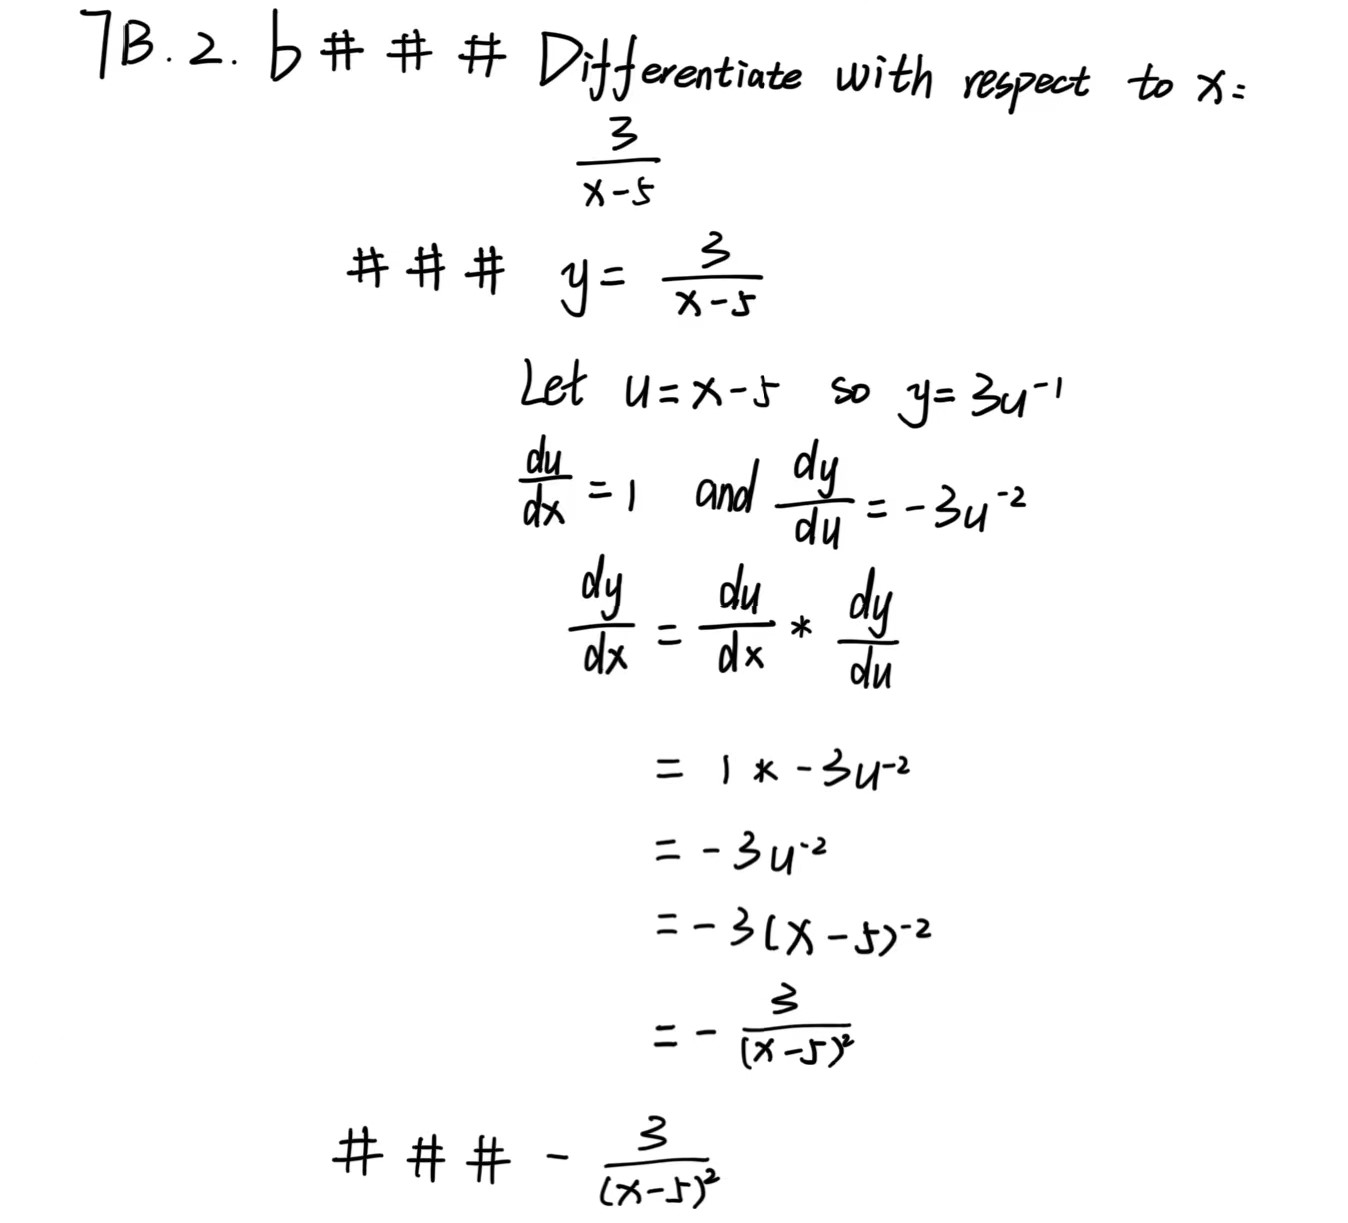 7B.2.b### Differentiate with respect to x:
3/(x-5)
### y = 3/(x-5)
Let u=x-5 so y=3u^-1
du/dx = 1 and dy/du = -3u^-2
dy/dx = du/dx * dy/du
= 1 * -3u^-2
= -3u^-2
= -3(x-5)^-2
= - 3/(x-5)^2
### - 3/(x-5)^2